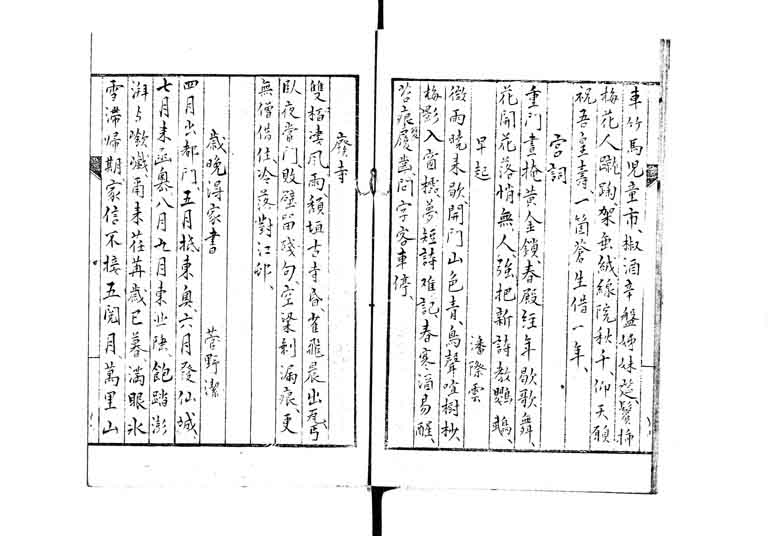 車竹馬児童市、椒酒辛盤姊妹筵、鬢挿
梅花人蹴踘、架垂絨線院秋千、仰天願
祝吾皇壽、一箇蒼生借一年、
宮詞
重門晝掩黄金鎖、春殿経年歇歌舞、
花開花落悄無人、強把新詩教鸚鵡、
早起　潘際雲
微雨曉来歇、開門山色青、鳥聲喧樹杪、
梅影入窗櫺、夢短詩難記、春寒酒易醒、
苔痕屐齒、問字客車停、
廢寺
雙栝凄風雨、頽垣古寺昏、雀飛晨出瓦、丐
臥夜當門、敗壁留殘句、空梁剰漏痕、更
無僧借住、冷落對江邨、
歳晩得家書　菅野潔
四月出都門、五月抵東奥、六月發仙城、
七月来西奥、八月九月東北陸、飽踏澎
湃与嶮巇、甭来荏苒歳已暮、満眼氷
雪滞帰期、家信不接五閲月、萬里山